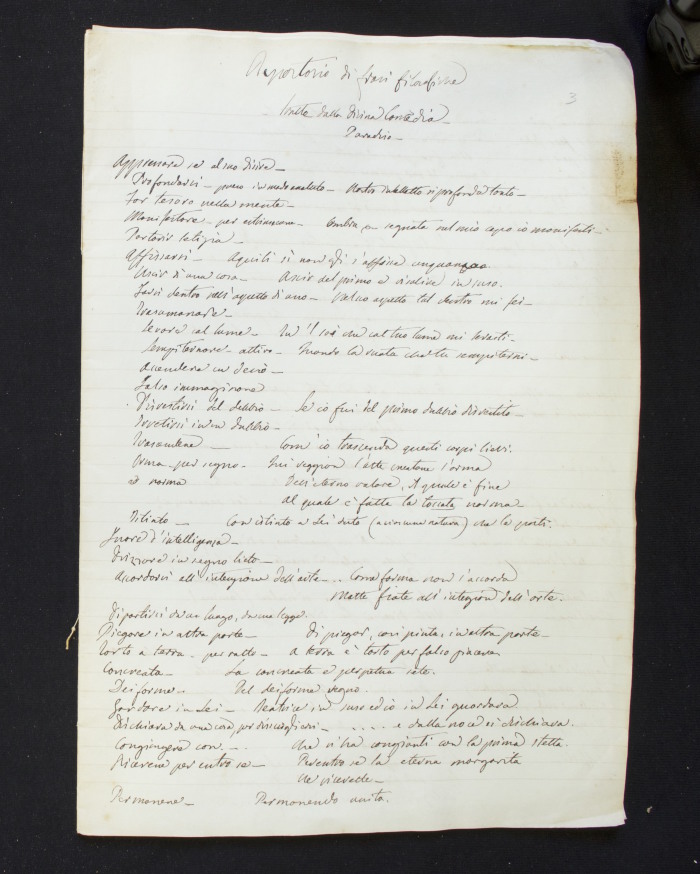 Repertorio di frasi filosofiche
3
tratte dalla Divina Comedia
Paradiso
Appressare se al suo disire
Profondarsi nostro intelletto si profonda tanto
Far tesoro nella mente
Manifestare per ombra segnata nel mio capo io manifesti
Partorir letizia
Affissarsi Aquila sì non gli s'affisse unquanco
Uscir d'una cosa uscir del primo e risalire in suso.
Farsi dentro nell'aspetto di uno Nel suo aspetto tal dentro mi fei
Trasumanare
Levare col lume Tu 'l sai che col tuo lume mi levasti
Sempiternare attivo la ruota che tu sempiterni
Accendere un desio
Falso immaginare
Disvestirsi del dubbio Se io fui del primo dubbio disvestito
Inretirsi in un dubbio
Trascendere Com' io trascenda questi corpi lievi.
Orma per segno Qui veggion l'alte creature l'orma
e norma Dell'eterno valore, il quale è fine
al quale è fatta la toccata norma
istinto a lei dato che la porti.
Fuore d'intelligenza
Drizzare in segno lieto
Accordarsi all'intenzione dell'arte Come forma non s'accorda
Molte fiate all'intenzion dell'arte.
Dipartirsi da un luogo, da una legge
Piegare in altra parte Di piegar, così pinta, in altra parte
Torto a terra A terra è torto per falso piacere.
Concreata La concreata e perpetua sete.
Deiforme Del deiforme regno.
Guardare in Lei Beatrice in suso ed io in lei guardava
e dalla noce si dischiava.
Congiungere con che n'ha congiunti con la prima stella.
Ricevere per entro se Per entro se la eterna margarita
ne ricevette
Permanere Permanendo unita.